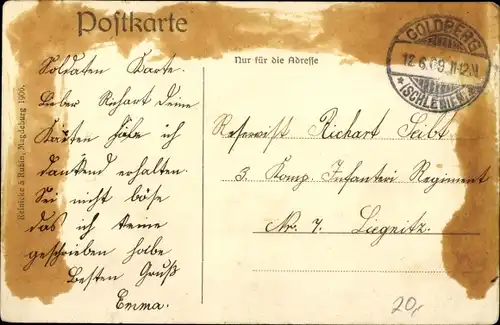 Postkarte
Nur für die Adresse
GOLDBERG
12.6.09.11-12N
(SCHLESIEN)
Reinicke & Rubin, Magdeburg 1906.
Soldaten Karte.
Lieber Richart deine
Karten habe ich
dankend erhalten.
Sei nicht böse
das ich keine
geschrieben habe
Besten Gruß
Emma.
Reservist Richart Seibt
3. Komp. Infanteri Regiment
Nr. 7. Liegnitz.
20,-